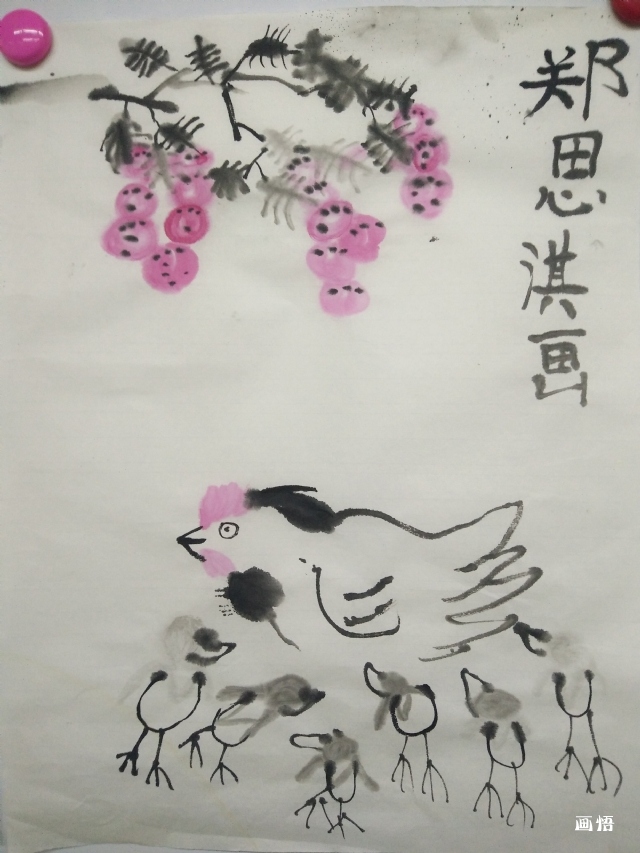 郑思淇画
画悟